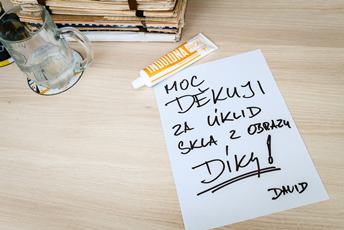 INDULONA
MOC
DĚKUJI
ZA ÚKLID
SKLA Z OBRAZU
Díky!
DAVID